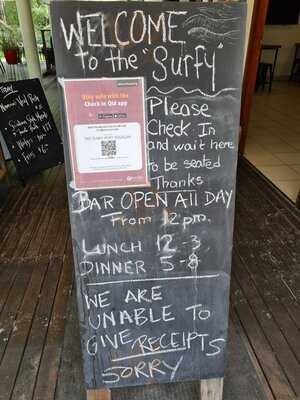 WELCOME
to the "Surfy"
Stay safe with the
Check in Qld app
Please
Check In
and wait here
to be seated
Thanks
BAR OPEN All DAY
From 12pm.
LUNCH 12-3
DINNER 5-8
WE ARE
UNABLE TO
GIVE RECEIPTS
SORRY